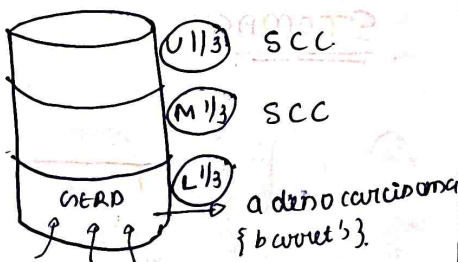 U 1/3 SCC
M 1/3 SCC
L 1/3
GERD
adenocarcinoma
{barret's}.